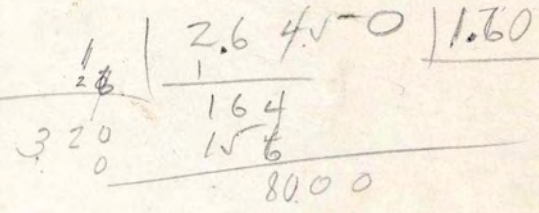 2.6 4√‾0 1.60
26 1
164
320 156
0
8000